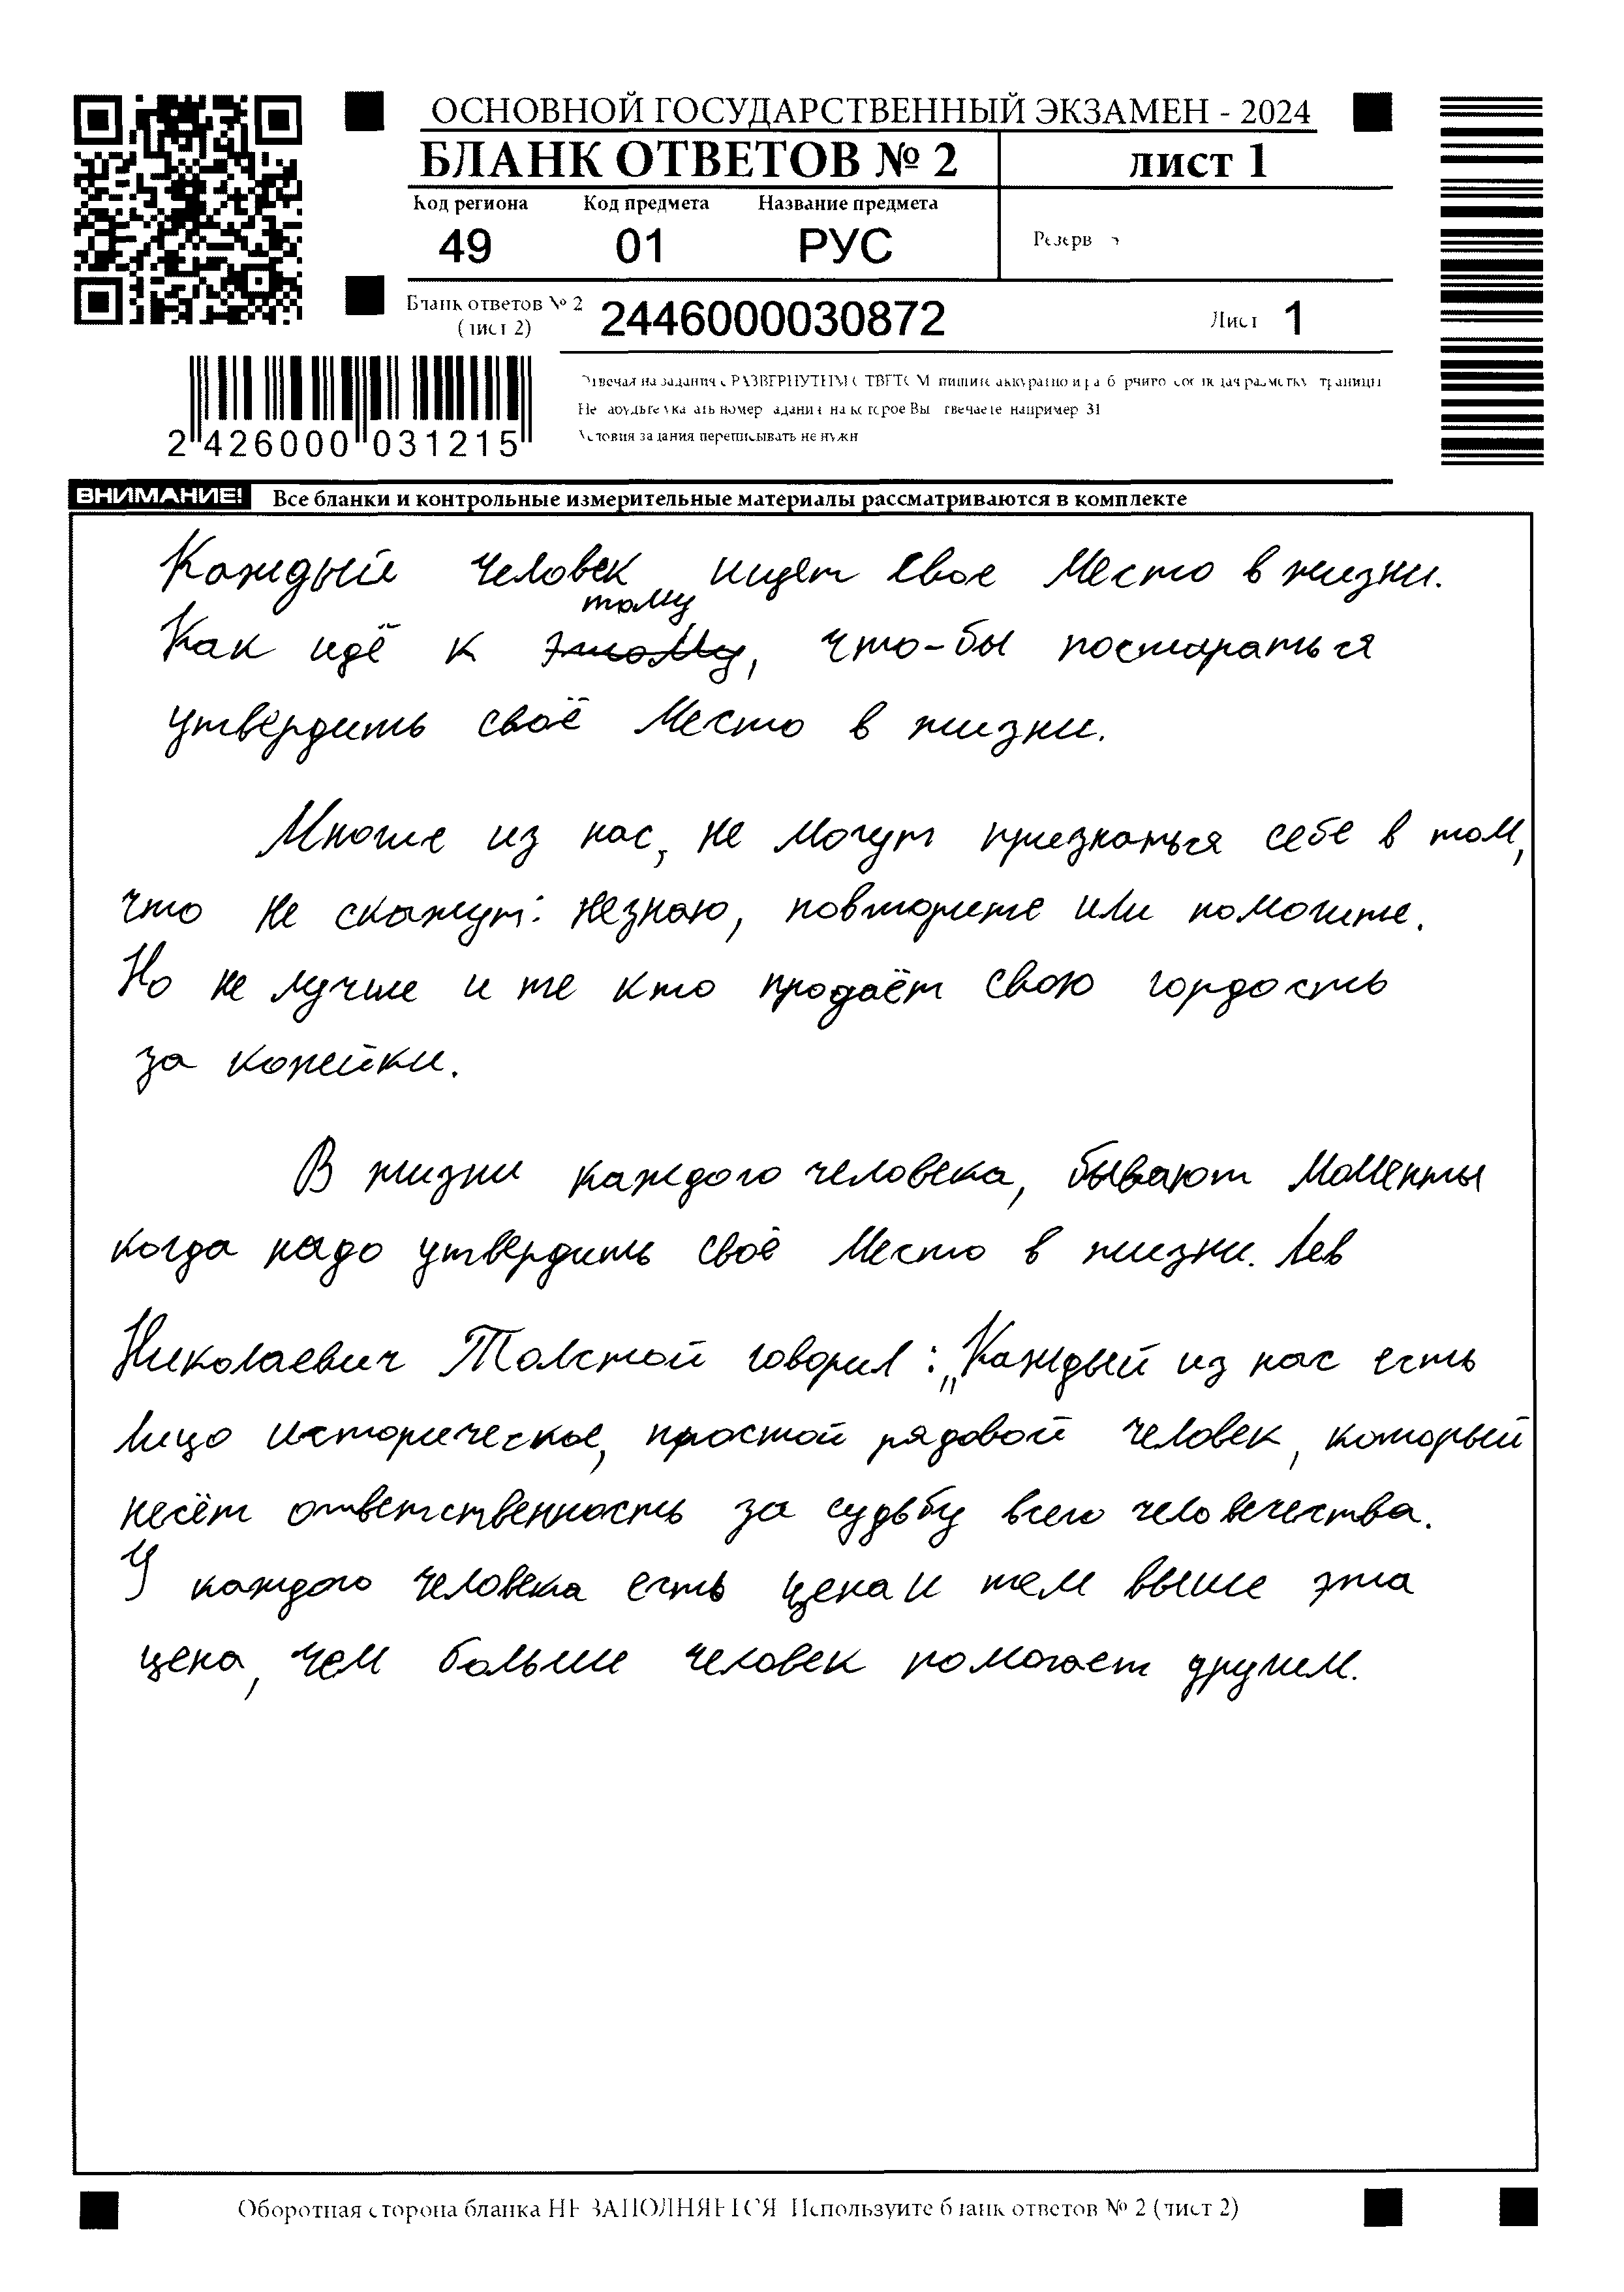 ОСНОВНОЙ ГОСУДАРСТВЕННЫЙ ЭКЗАМЕН - 2024
БЛАНК ОТВЕТОВ № 2
лист 1
Код региона Код предмета Название предмета
49 01 РУС
Резерв
Бланк ответов № 2
(лист 2)
2446000030872
Лист 1
2 426000 031215
Отвечая на задания с РАЗВЕРНУТЫМ ОТВЕТОМ, пишите аккуратно и разборчиво, соблюдая разметку страницы
Не забудьте указать номер задания, на которое Вы отвечаете, например, 31
Условия задания переписывать не нужно
ВНИМАНИЕ! Все бланки и контрольные измерительные материалы рассматриваются в комплекте
Каждый человек ищет свое место в жизни.
тому
Как идё к этому, что-бы постараться
утвердить своё место в жизни.
Многие из нас, не могут признаться себе в том,
что не скажут: незнаю, повторите или помогите.
Но не лучше и те кто продаёт свою гордость
за копейки.
В жизни каждого человека, бывают моменты
когда надо утвердить своё место в жизни. Лев
Николаевич Толстой говорил: „Каждый из нас есть
лицо историческое, простой рядовой человек, который
несёт ответственность за судьбу всего человечества.
У каждого человека есть цена и тем выше эта
цена, чем больше человек помогает другим.
Оборотная сторона бланка НЕ ЗАПОЛНЯЕТСЯ. Используйте бланк ответов № 2 (лист 2)